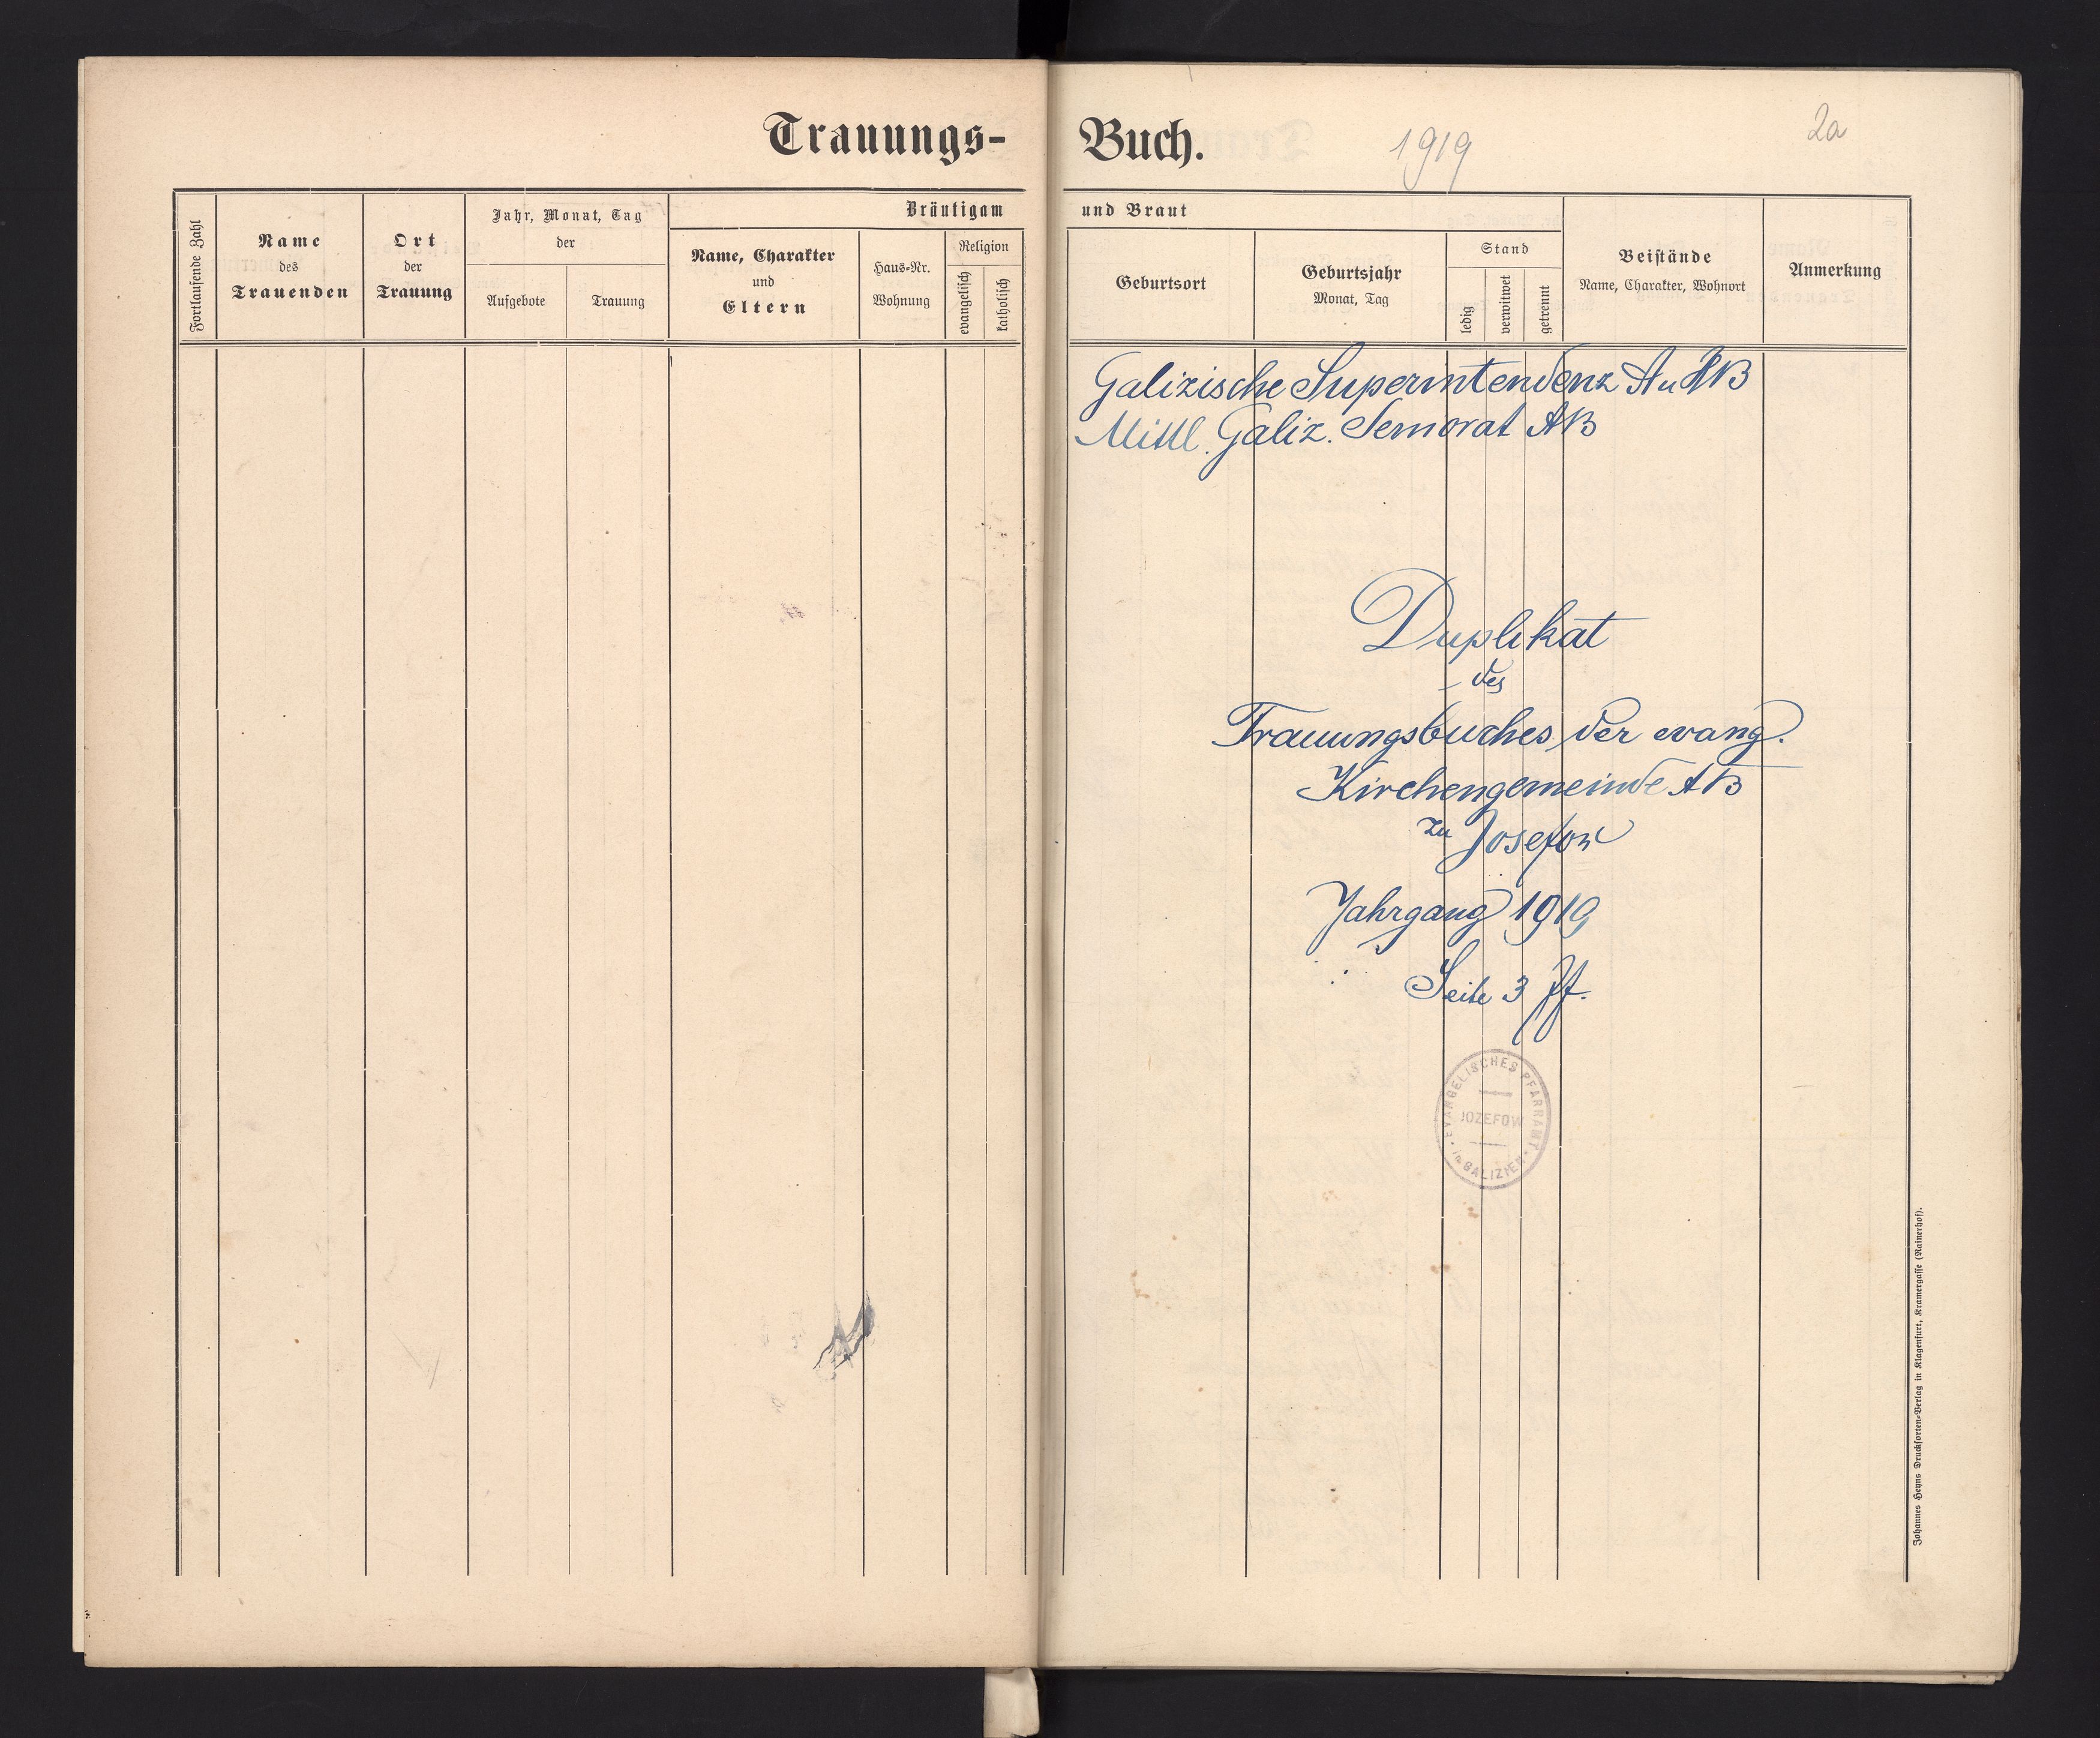 Trauungs-Buch.
1919
2a
Fortlaufende Zahl
Name
des
Trauenden
Ort
der
Trauung
Jahr, Monat, Tag
der
Aufgebote
Trauung
Bräutigam und Braut
Name, Charakter
und
Eltern
Haus-Nr.
Wohnung
Religion
evangelisch
katholisch
Geburtsort
Geburtsjahr
Monat, Tag
Stand
ledig
verwitwet
getrennt
Beistände
Name, Charakter, Wohnort
Anmerkung
Galizische Superintendenz A u HB
Mittl. Galiz. Seniorat AB
Duplikat
des
Trauungsbuches der evang.
Kirchengemeinde AB
zu Josefow
Jahrgang 1919
Seite 3 ff.
EVANGELISCHES PFARRAMT
JOZEFOW
in GALIZIEN
Johannes Heyns Drucksorten-Verlag in Klagenfurt, Kramergasse (Rainerhof).